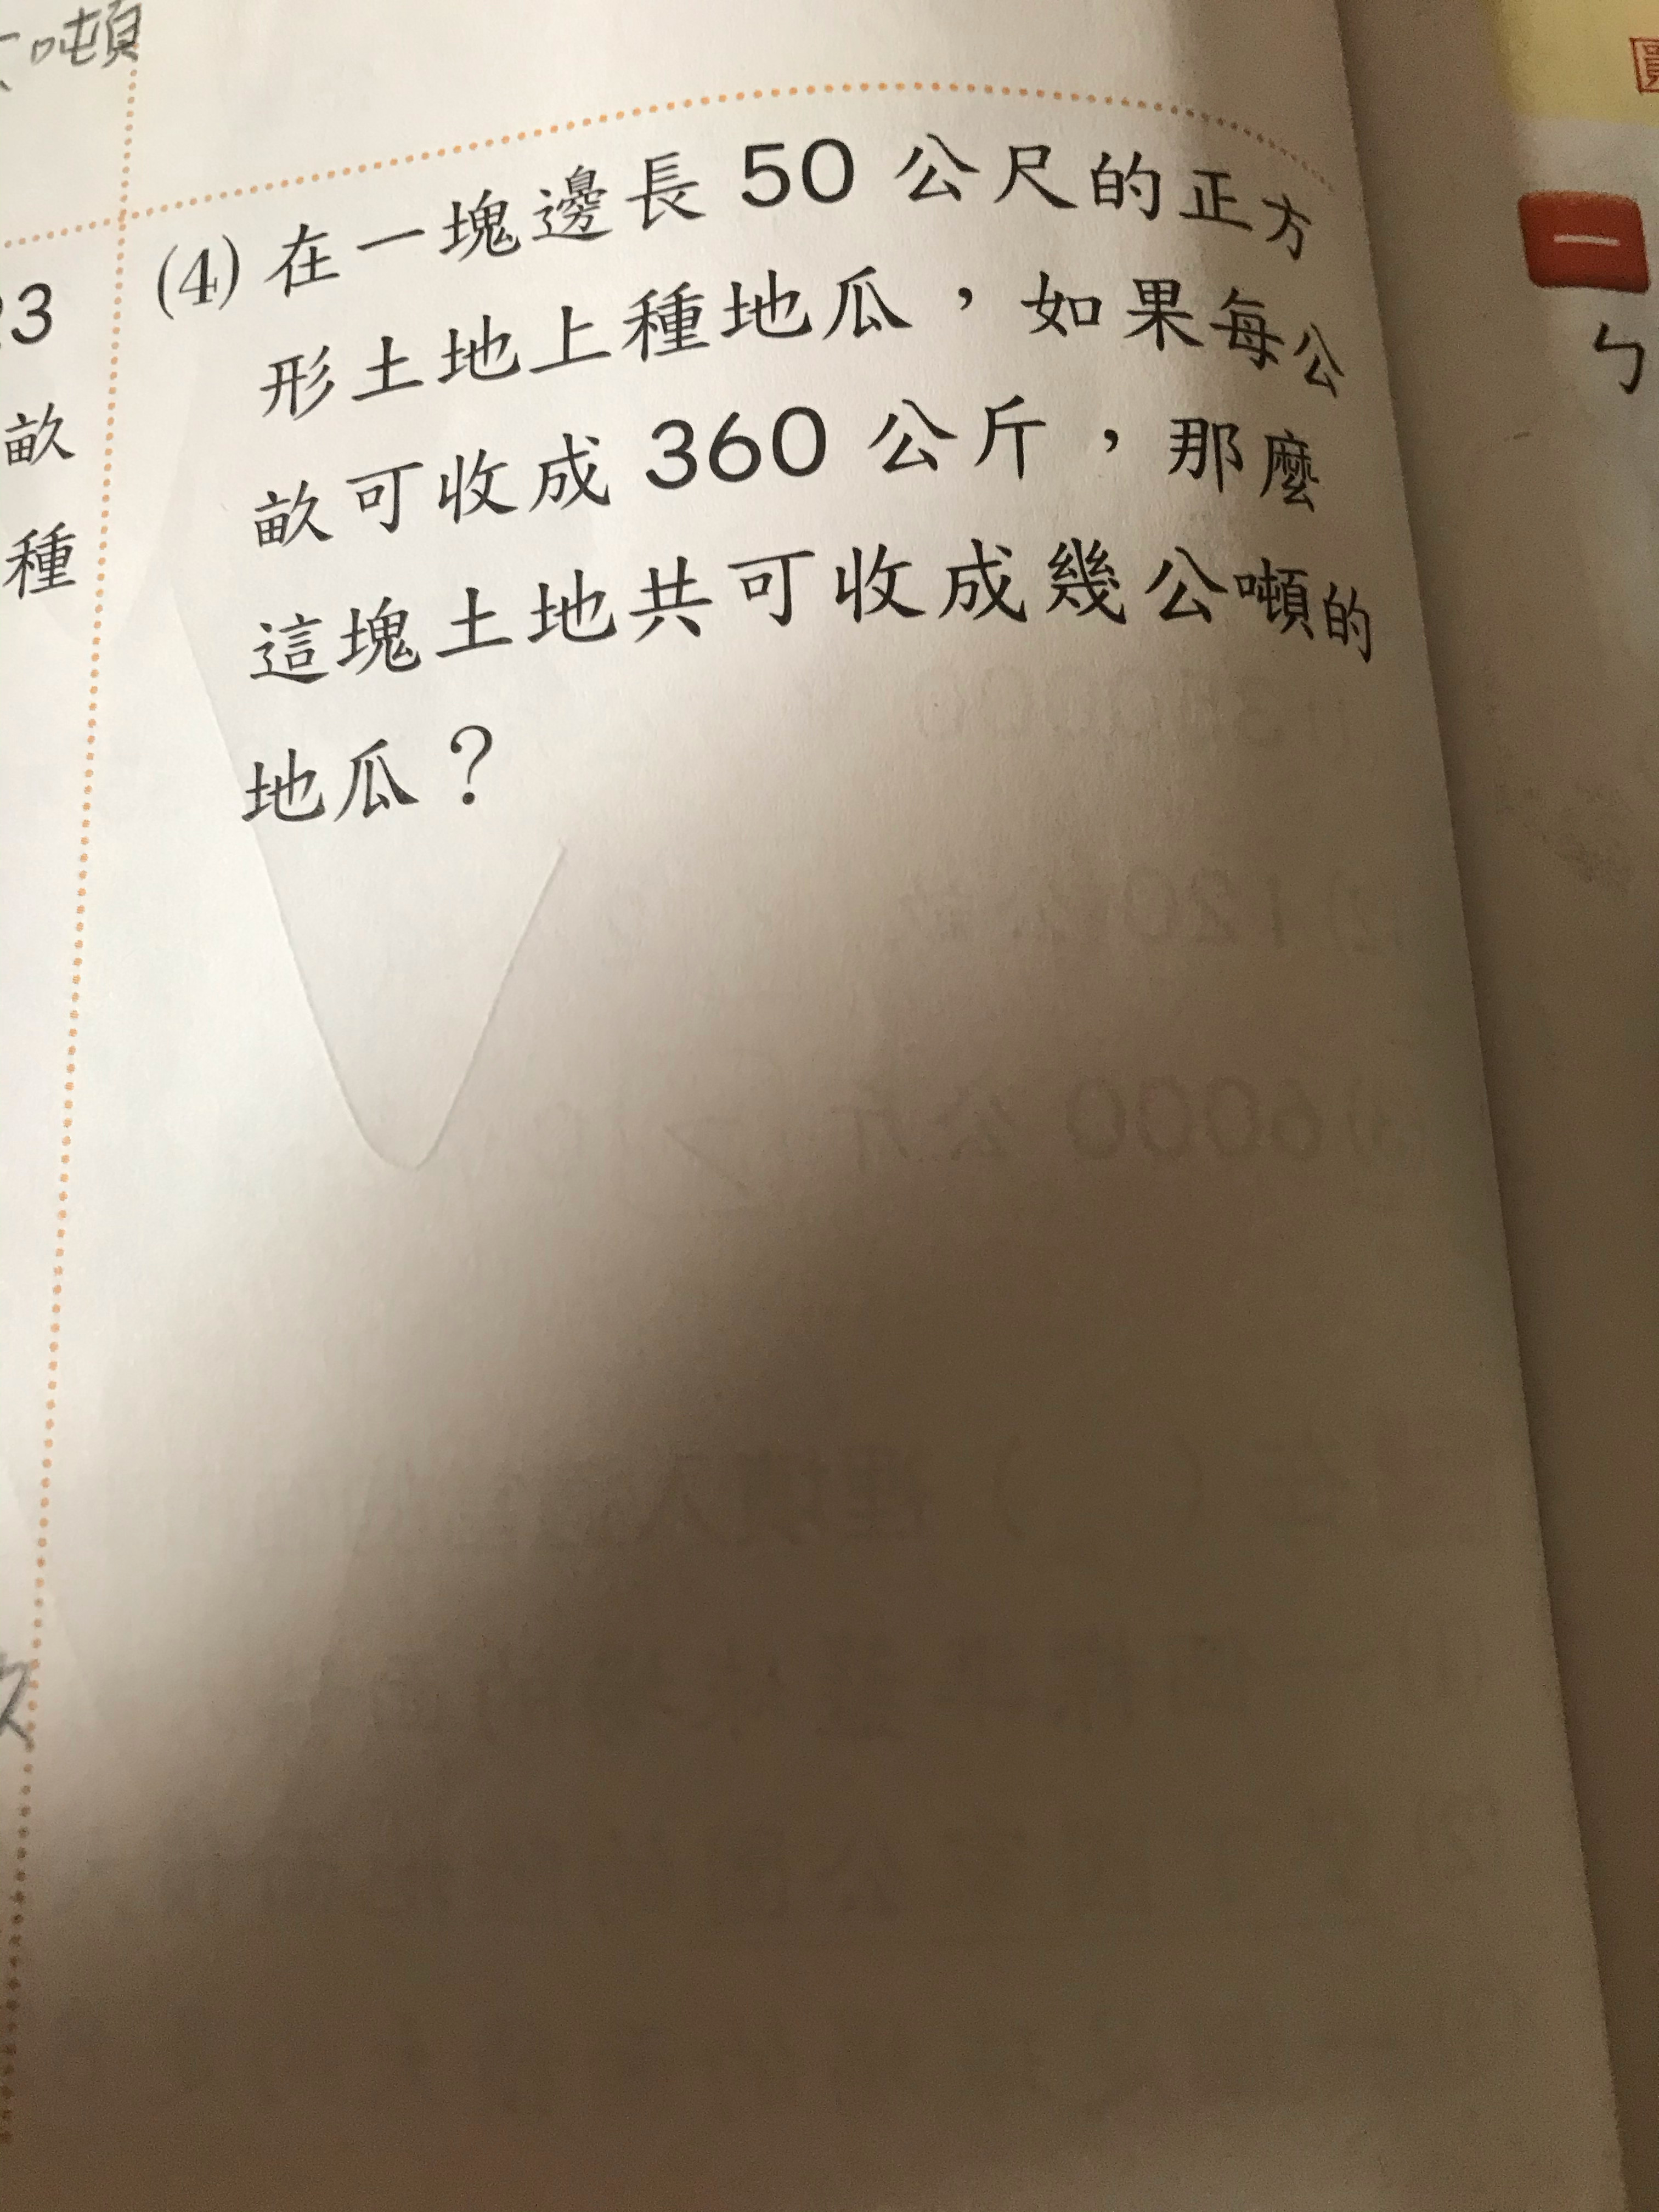 噸
(4) 在一塊邊長 50 公尺的正方
形土地上種地瓜，如果每公
畝可收成 360 公斤，那麼
這塊土地共可收成幾公噸的
地瓜？
3
畝
種
一
ㄅ